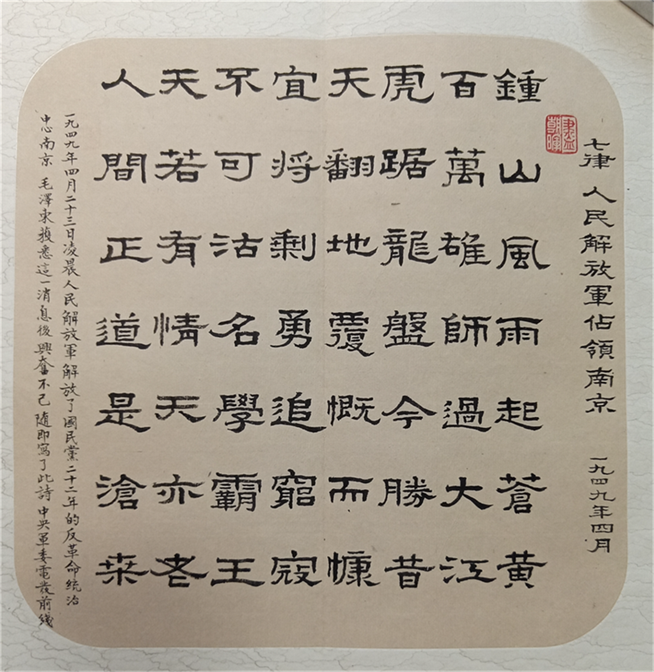 七律 人民解放軍佔領南京 一九四九年四月
鍾山風雨起蒼黄
百萬雄師過大江
虎踞龍盤今勝昔
天翻地覆慨而慷
宜將剩勇追窮寇
不可沽名學霸王
天若有情天亦老
人間正道是滄桒
一九四九年四月二十三日凌晨人民解放軍解放了國民黨二十二年的反革命統治
中心南京 毛澤東獲悉這一消息後興奮不已 隨即寫了此詩 中央軍委電發前綫